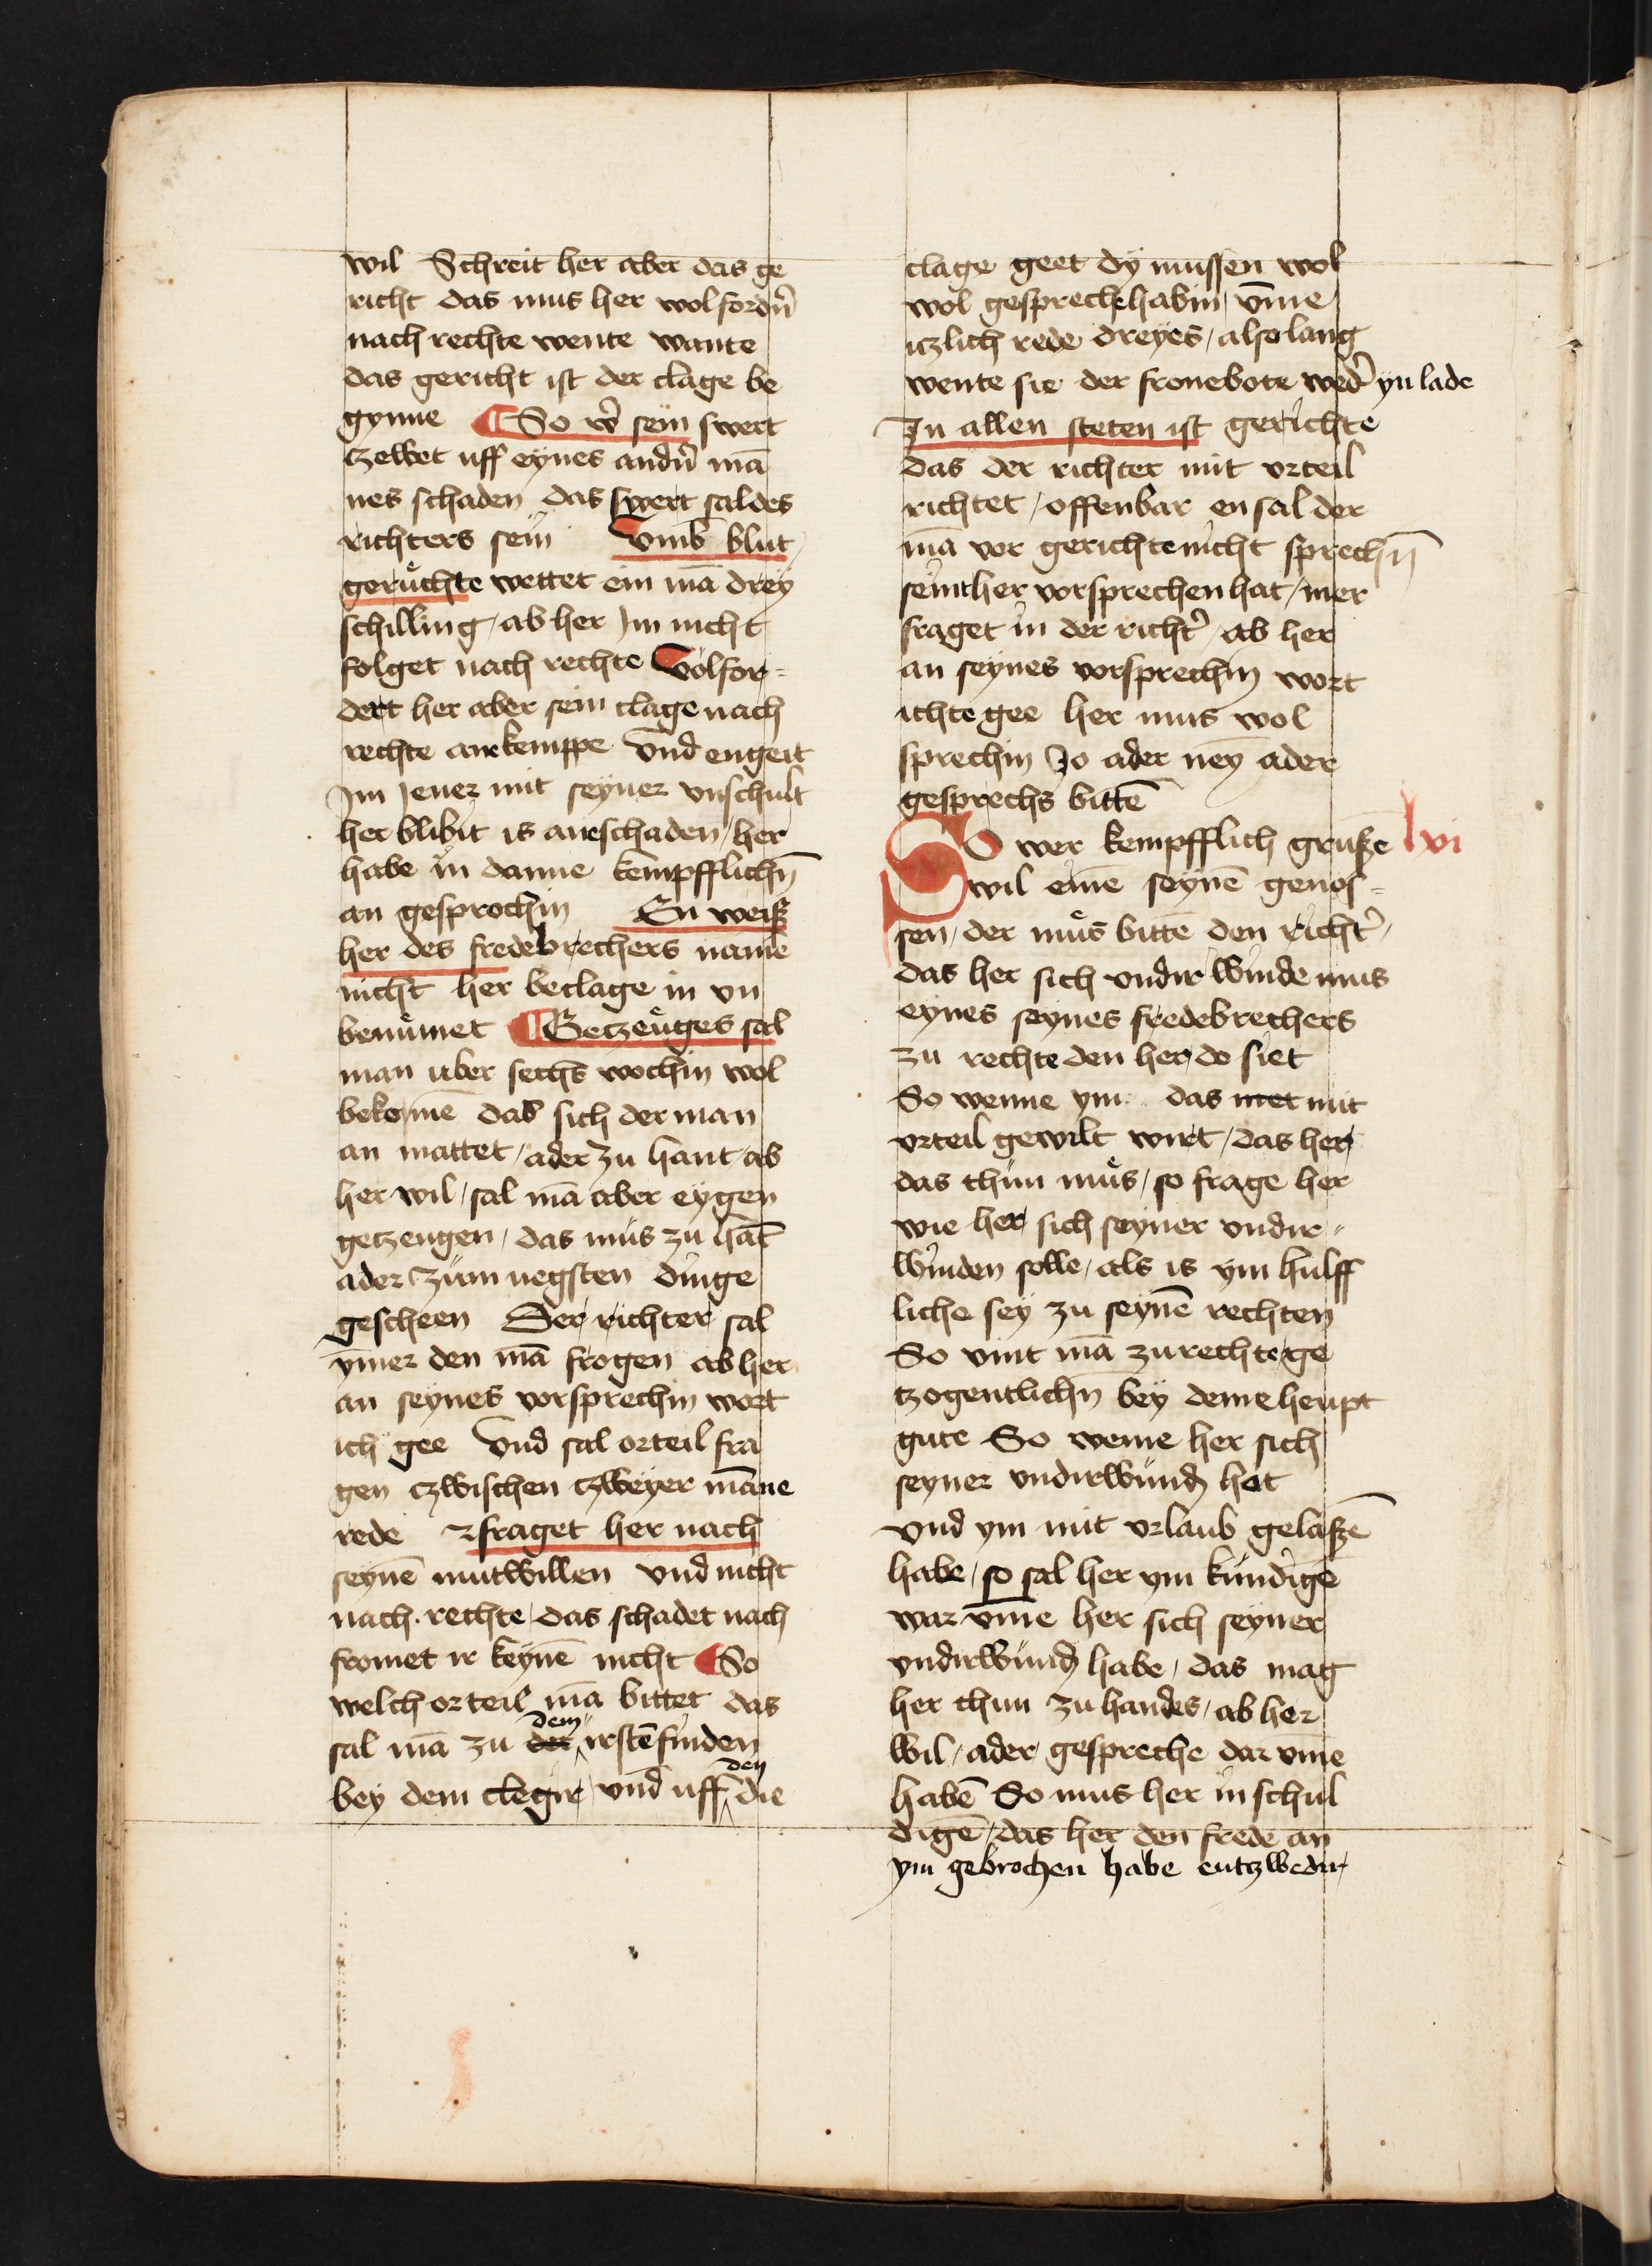 wil Schreit her aber das ge
richt das mus her wolfordn̄
nach rechte wente wante
das gericht ist der clage be
gynne So w̄ sein swert
czewet uff eynes andn̄ mā
nes schaden das swert sal des
richters sein Vmb blut
gerůchte wettet ein mā drey
schilling / ab her Im nicht
folget nach rechte Volfor-
dert her aber sein clage nach
rechte ane kemppe Vnd engeit
Im Jener mit seyner vnschult
her blibit is ane schaden / her
habe in danne kempfflichn̄
an gesprochin En weiß
her des fredebrechers name
nicht her beclage in vn
benůmet Getzeůges sal
man uber sechs wochin wol
bekomē das sich der man
an mattet / ader zu hant / ab
her wil / sal mā aber eygen
getzeugen / das mus zu hāt
ader zum negsten dinge
gescheen Der richter sal
ȳmer den mā frogen ab her
an seynes vorsprechin wort
ich gee Vnd sal orteil fra
gen czwischen czweyer māne
rede fraget her nach
seynē mutwillen vnd nicht
nach rechte / das schadet nach
fromet ir keynē nicht So
welch orteil mā bittet das
sal mā zu der dem irstē finden
bey dem clegir / vnd uff den die
clage geet dy mussen wol
wol gesprech habin / vm̄e
iczlich rede dreyes / also lang
wente sie der fronebote wed̄ yn lade
In allen steten ist gerichte
das der richter mit vrteil
richtet / offenbar en sal der
mā vor gerichte nicht sprechn̄
seint her vorsprechen hat / mer
fraget in der richt̄ / ab her
an seynes vorsprechin wort
ichte gee her mus wol
sprechin Jo ader ney ader
gesprechs bittē
So wer kempfflich gruße lvi
wil eine seynē genos-
sen / der můs bittē den richt̄ /
das her sich vndir winde mus
eynes seynes fredebrechers
zu rechte den her do siet
So wenne ym das met mit
vrteil gewilt wirt / das her
das thun můs / so frage her
wie her sich seyner vndir-
winden solle / als is ym hulff
liche sey zu seynē rechten
So vint mā zu rechte ge
tzogentlichn̄ bey deme heupt
gute So wenne her sich
seyner vndirwund hot
Vnd ym mit vrlaub gelaßē
habe / so sal her ym kundigē
war vm̄e her sich seyner
vndirwund habe / das mag
her thun zu handes / ab her
wil / ader gespreche dar vm̄e
habē So mus her in schul
digē / das her den frede an
ym gebrochen habe entzwedir